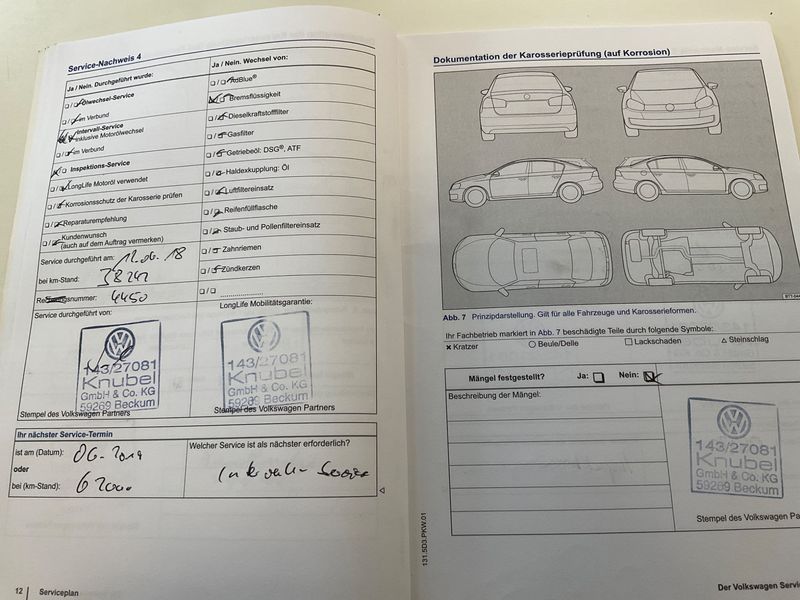 Service-Nachweis 4
Ja / Nein. Durchgeführt wurde:
Ölwechsel-Service
im Verbund
Intervall-Service
inklusive Motorölwechsel
im Verbund
Inspektions-Service
LongLife Motoröl verwendet
Korrosionsschutz der Karosserie prüfen
Reparaturempfehlung
Kundenwunsch
(auch auf dem Auftrag vermerken)
Service durchgeführt am: 12.06.18
bei km-Stand:
nummer: 4450
Service durchgeführt von:
143/27081
Knubel
GmbH & Co. KG
59269 Beckum
Stempel des Volkswagen Partners
Ja / Nein. Wechsel von:
AdBlue®
Bremsflüssigkeit
Dieselkraftstofffilter
Gasfilter
Getriebeöl: DSG®, ATF
Haldexkupplung: Öl
Luftfiltereinsatz
Reifenfüllflasche
Staub- und Pollenfiltereinsatz
Zahnriemen
Zündkerzen
LongLife Mobilitätsgarantie:
143/27081
Knubel
GmbH & Co. KG
59269 Beckum
Stempel des Volkswagen Partners
Ihr nächster Service-Termin
ist am (Datum): 06.2019
oder
bei (km-Stand):
Welcher Service ist als nächster erforderlich?
Intervall-Service
12 Serviceplan
Dokumentation der Karosserieprüfung (auf Korrosion)
Abb. 7 Prinzipdarstellung. Gilt für alle Fahrzeuge und Karosserieformen.
Ihr Fachbetrieb markiert in Abb. 7 beschädigte Teile durch folgende Symbole:
× Kratzer ○ Beule/Delle □ Lackschaden △ Steinschlag
Mängel festgestellt? Ja: Nein:
Beschreibung der Mängel:
143/27081
Knubel
GmbH & Co. KG
59269 Beckum
Stempel des Volkswagen Pa
131.5D3.PKW.01
Der Volkswagen Servi